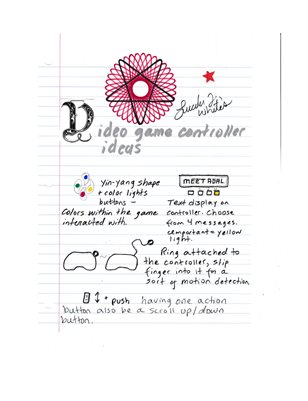 Video game controller
ideas
yin-yang shape
+ color lights
buttons -
colors within the game
interacted with.
Text display on
controller. Choose
from 4 messages.
important = yellow
light.
Ring attached to
the controller, slip
finger into it for a
sort of motion detection
+ push having one action
button also be a scroll up/down
button.